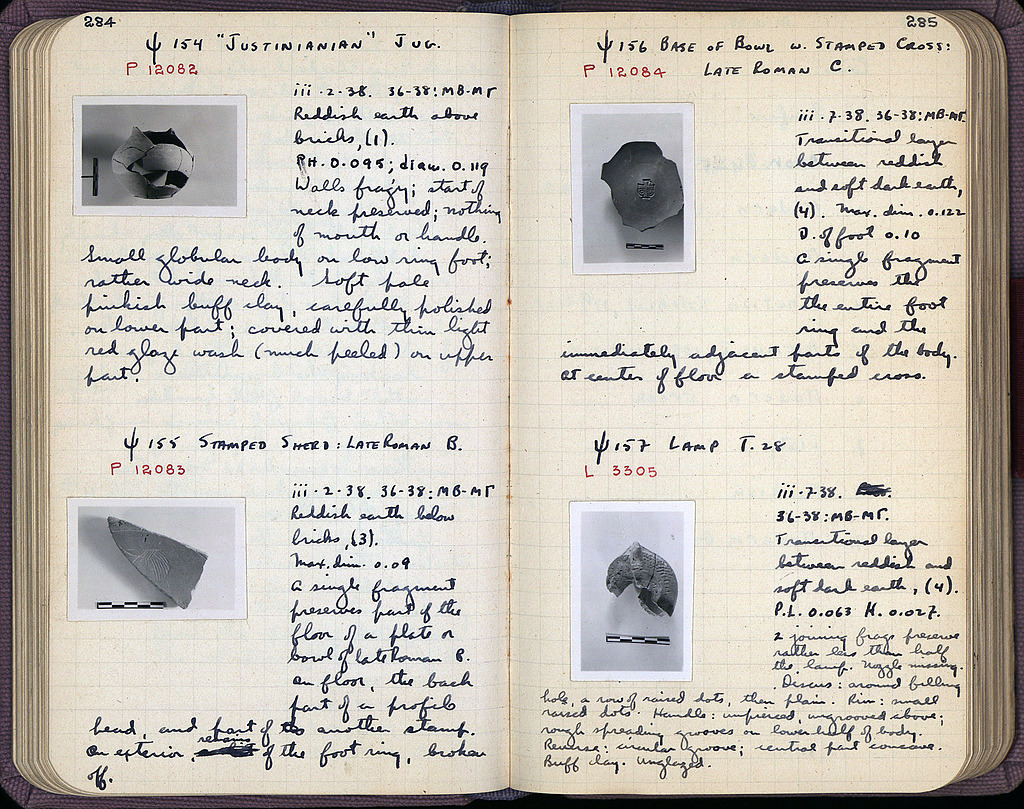 284
ψ 154 "JUSTINIANIAN" JUG.
P 12082
iii-2-38. 36-38:MB-ΜΓ
Reddish earth above
bricks, (1).
PH. 0.095; diam. 0.119
Walls fragy; start of
neck preserved; nothing
of mouth or handle.
Small globular body on low ring foot;
rather wide neck. Soft pale
pinkish buff clay, carefully polished
on lower part; covered with thin light
red glaze wash (much peeled) on upper
part.
ψ 155 STAMPED SHERD: LATE ROMAN B.
P 12083
iii-2-38. 36-38:MB-ΜΓ
Reddish earth below
bricks, (3).
Max. dim. 0.09
A single fragment
preserves part of the
floor of a plate or
bowl of late Roman B.
On floor, the back
part of a profile
head, and part of another stamp.
On exterior, remains of the foot ring, broken
off.
285
ψ 156 BASE OF BOWL W. STAMPED CROSS:
P 12084 LATE ROMAN C.
iii-7-38. 36-38:MB-ΜΓ.
Transitional layer
between reddish
and soft dark earth,
(4). Max. dim. 0.122
D. of foot 0.10
A single fragment
preserves the
the entire foot
ring and the
immediately adjacent parts of the body.
At center of floor a stamped cross.
ψ 157 LAMP T. 28
L 3305
iii-7-38.
36-38:MB-ΜΓ.
Transitional layer
between reddish and
soft dark earth, (4).
P.L. 0.063 H. 0.027.
2 joining frags preserve
rather less than half
the lamp. Nozzle missing.
Discus: around filling
hole, a row of raised dots, then plain. Rim: small
raised dots. Handle: unpierced, ungrooved above;
rough spreading grooves on lower half of body.
Reverse: circular groove; central part concave.
Buff clay. Unglazed.